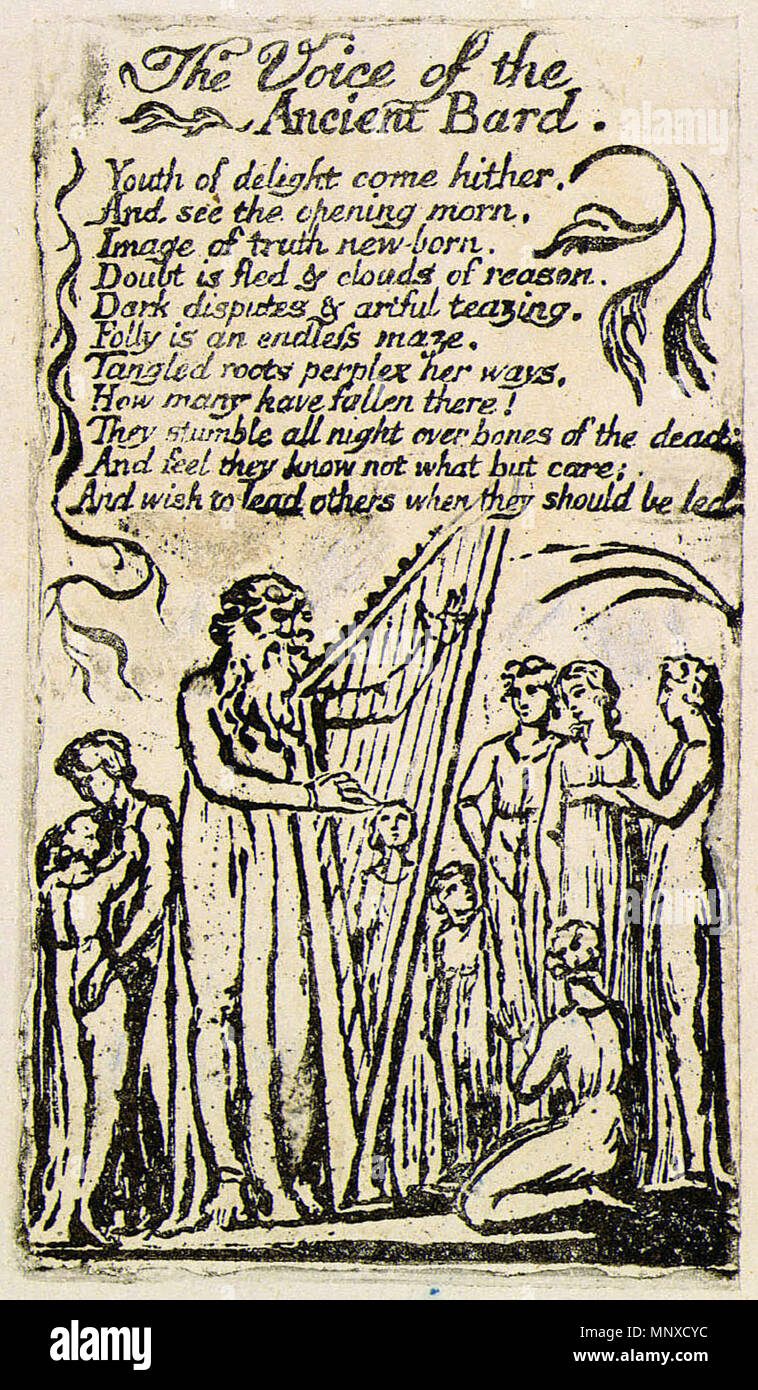 The Voice of the
Ancient Bard.
Youth of delight come hither.
And see the opening morn,
Image of truth new-born.
Doubt is fled & clouds of reason.
Dark disputes & artful teazing.
Folly is an endleſs maze.
Tangled roots perplex her ways,
How many have fallen there!
They stumble all night over bones of the dead;
And feel they know not what but care;
And wish to lead others when they should be led
alamy
alamy
alamy
alamy
Image ID: MNXCYC
www.alamy.com